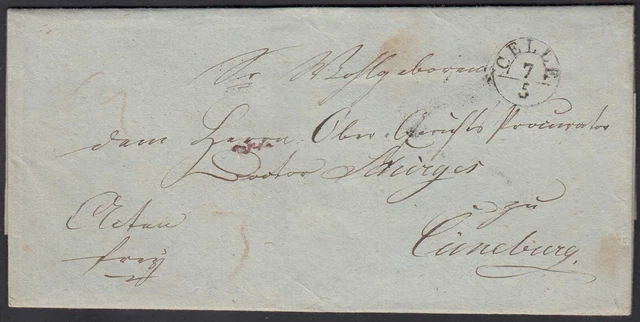 CELLE
7
5
Sr Wohlgeboren
dem Herrn Ober-Gerichts Procurator
Doctor
zu
Lüneburg.
Acten
frey